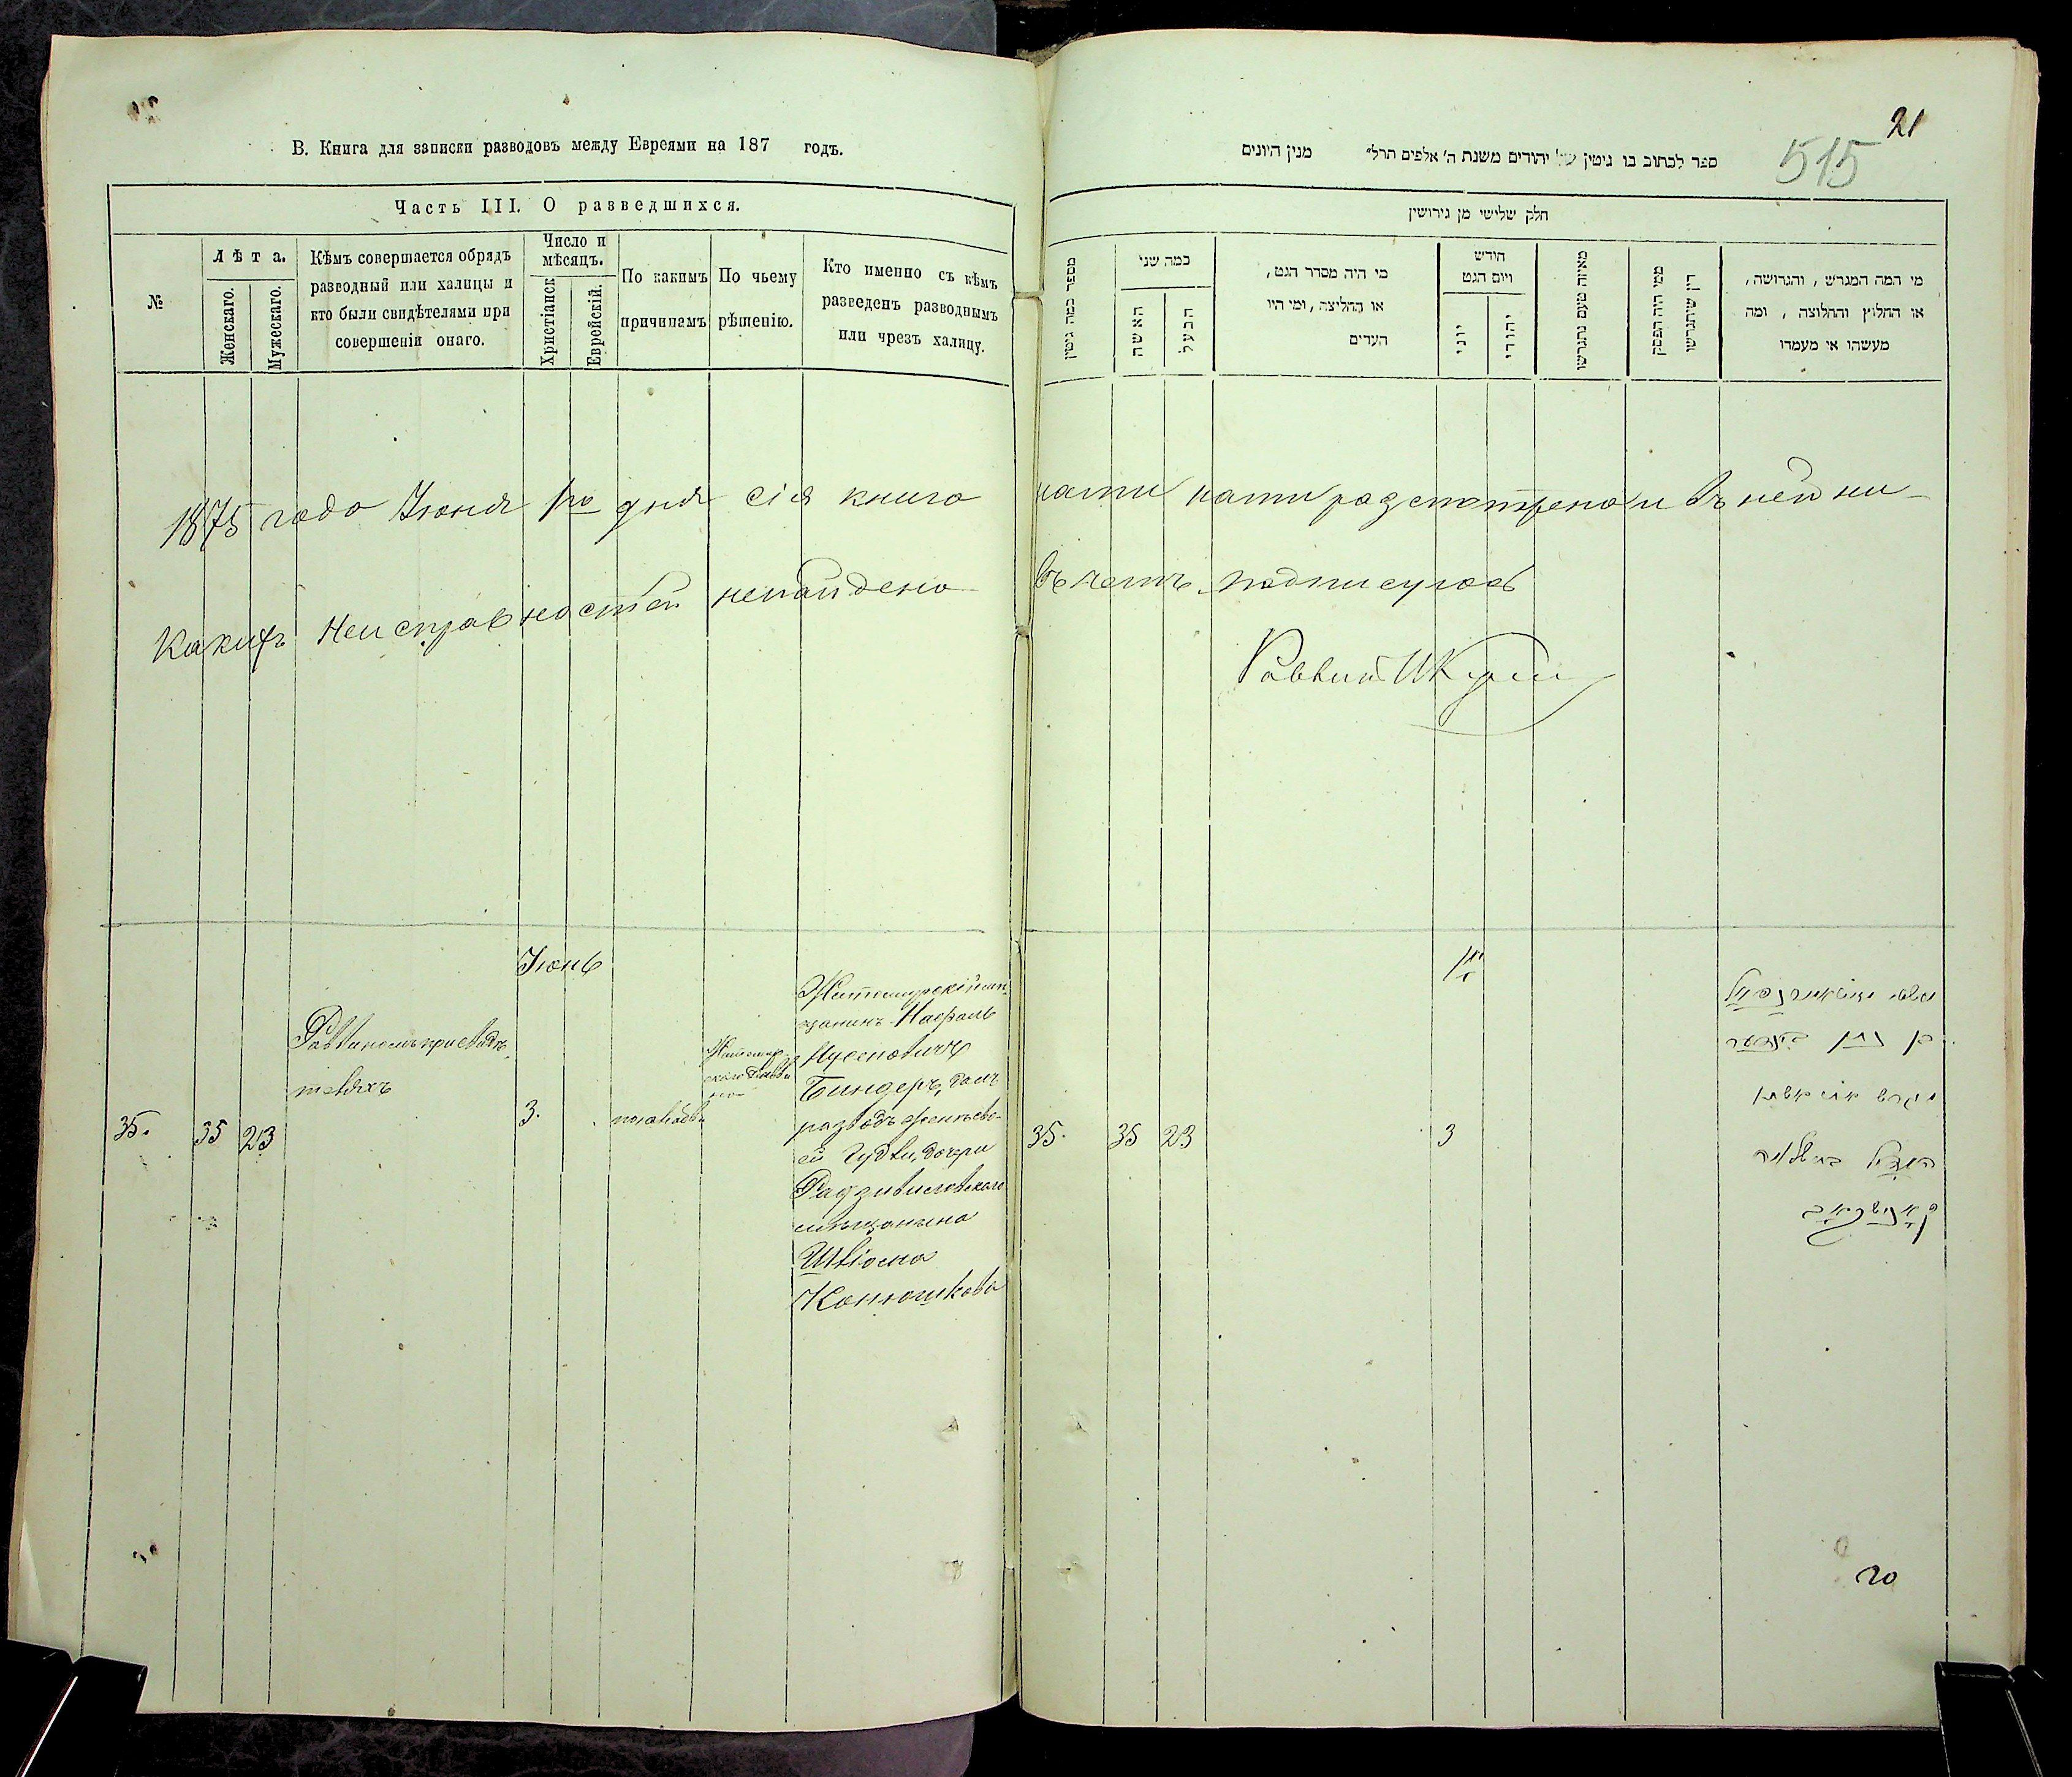 В. Книга для записки разводовъ между Евреями на 187 годъ.
Часть III. О разведшихся.
№
Лѣта.
Женскаго.
Мужескаго.
Кѣмъ совершается обрядъ
разводный или халицы и
кто были свидѣтелями при
совершеніи онаго.
Число и
мѣсяцъ.
Христіанск
Еврейскій.
По какимъ
причинамъ
По чьему
рѣшенію.
Кто именно съ кѣмъ
разведенъ разводнымъ
или чрезъ халицу.
21
515
ספר לכתוב בו גיטין של יהודים משנת ה' אלפים תרל" מנין היונים
חלק שלישי מן גירושין
מספר כמה גיטין
כמה שני
האשה
הבעל
מי היה מסדר הגט,
או החליצה, ומי היו
העדים
חודש
ויום הגט
יוני
יהודי
מאיזה טעם נתגרשו
ממי היה הפסק
דין שיתגרשו
מי המה המגרש, והגרושה,
או החלוץ והחלוצה, ומה
מעשהו או מעמדו
1875 года Іюня 1го дня сія книга нами разсмотрена и въ ней ни-
какихъ неисправностей ненайдено въ чемъ подписуюсь
Раввинъ
Іюнь
35. 35 23
Раввиномъ при свидѣ-
теляхъ
3.
по любви
Житомир-
скаго Равви
на
Житомирскій мѣ-
щанинъ
Нусеновичъ
Биндеръ, далъ
разводъ женѣ сво-
ей Гудли, дочери
Радзивиловскаго
мѣщанина
Конюшкова
35. 35 23
3
בן נתן בינדער
20